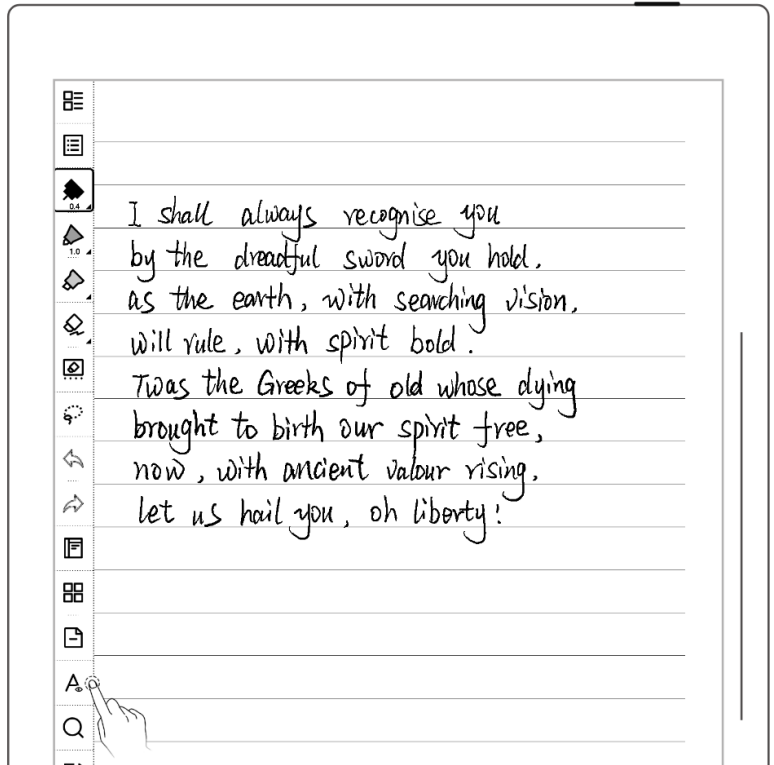 0.4
1.0
I shall always recognise you
by the dreadful sword you hold.
as the earth, with searching vision,
will rule, with spirit bold.
Twas the Greeks of old whose dying
brought to birth our spirit free,
now, with ancient valour rising.
let us hail you, oh liberty!